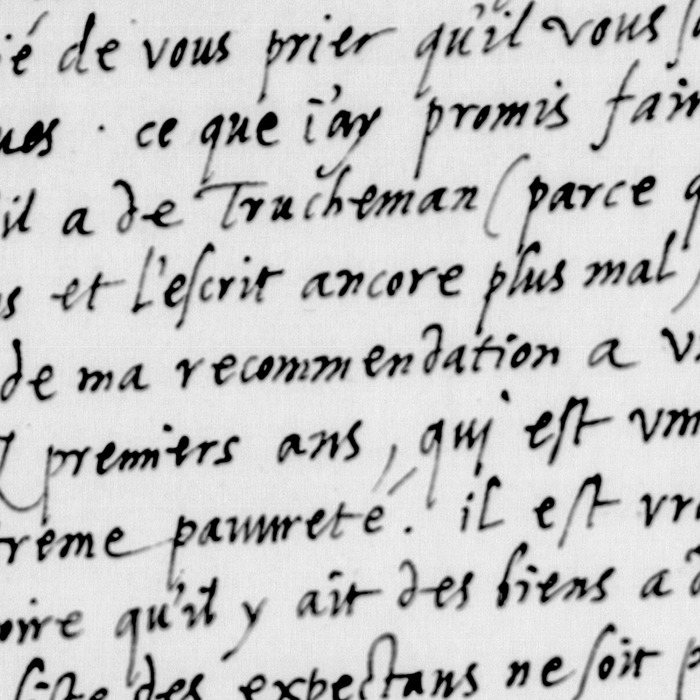 ié de vous prier qu'il vous
ues. ce que i'ay promis fair
il a de Trucheman (parce q
s et l'escrit ancore plus mal)
de ma recommendation a v
premiers ans, qui est vn
reme pauureté. il est vr
oire qu'il y ait des biens a
des expectans ne soit p